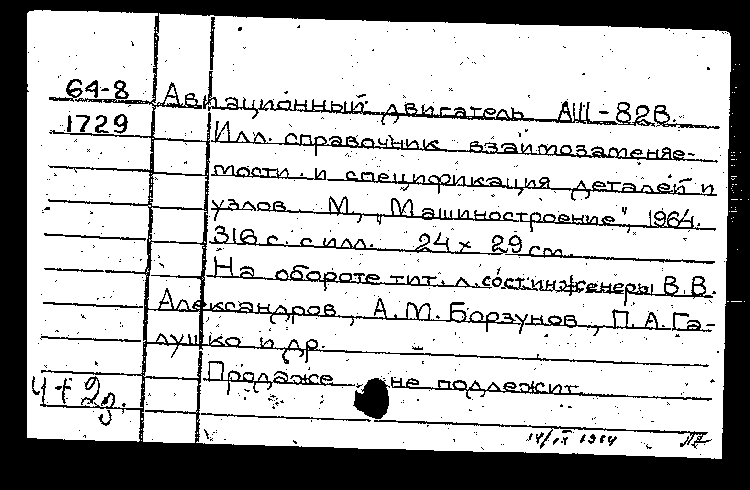 64-8 Авиационный двигатель АШ-82В.
1729 Илл. справочник взаимозаменяе-
мости и спецификация деталей и
узлов. М., „Машиностроение", 1964.
316 с. с илл. 24 × 29 см.
На обороте тит. л. сост. инженеры В.В.
Александров, А.М. Борзунов, П.А. Га-
лушко и др. –
Продаже не подлежит
ч + 2д.
14/IX 1964